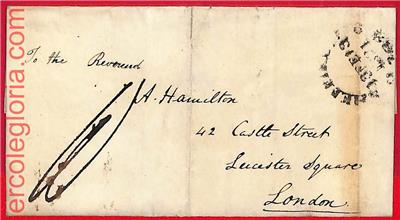 To the Reverend
A. Hamilton
42 Castle Street
Leicester Square
London
ercolegloria.com